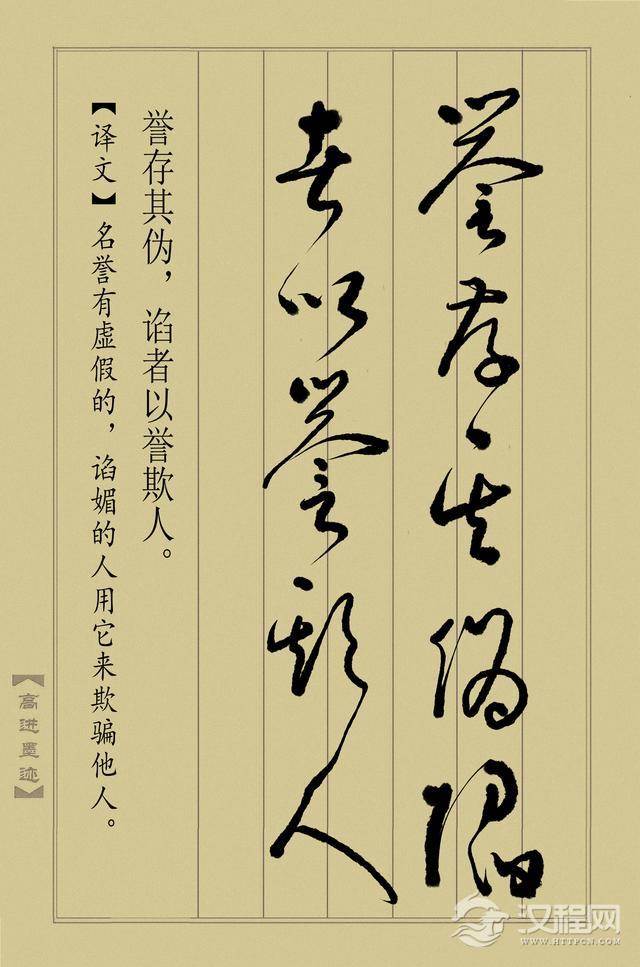 誉存其伪谄
者以誉欺人
誉存其伪，谄者以誉欺人。
【译文】名誉有虚假的，谄媚的人用它来欺骗他人。
【高进墨迹】
汉程网
WWW.HTTPCN.COM